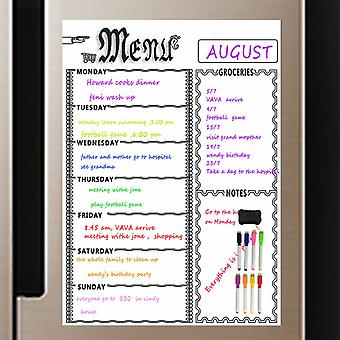 Menu
AUGUST
MONDAY
Howard cooks dinner
jeni wash up
TUESDAY
Wenday learn swimming ,3:00 pm
football game ,6:00 pm
WEDNESDAY
father and mother go to hospital
see grandma
THURSDAY
meeting withe jone
play football game
FRIDAY
8:45 am, VAVA arrive
meeting withe jone , shopping
SATURDAY
the whole family to clean up
wendy's birthday party
SUNDAY
everyone go to BBQ in cindy
house
GROCERIES
5/7
VAVA arrive
4/7
football game
15/7
visit grand mopther
19/7
wendy birthday
23/7
Take a day to the hospital
NOTES
Go to the
on Monday
Everything is